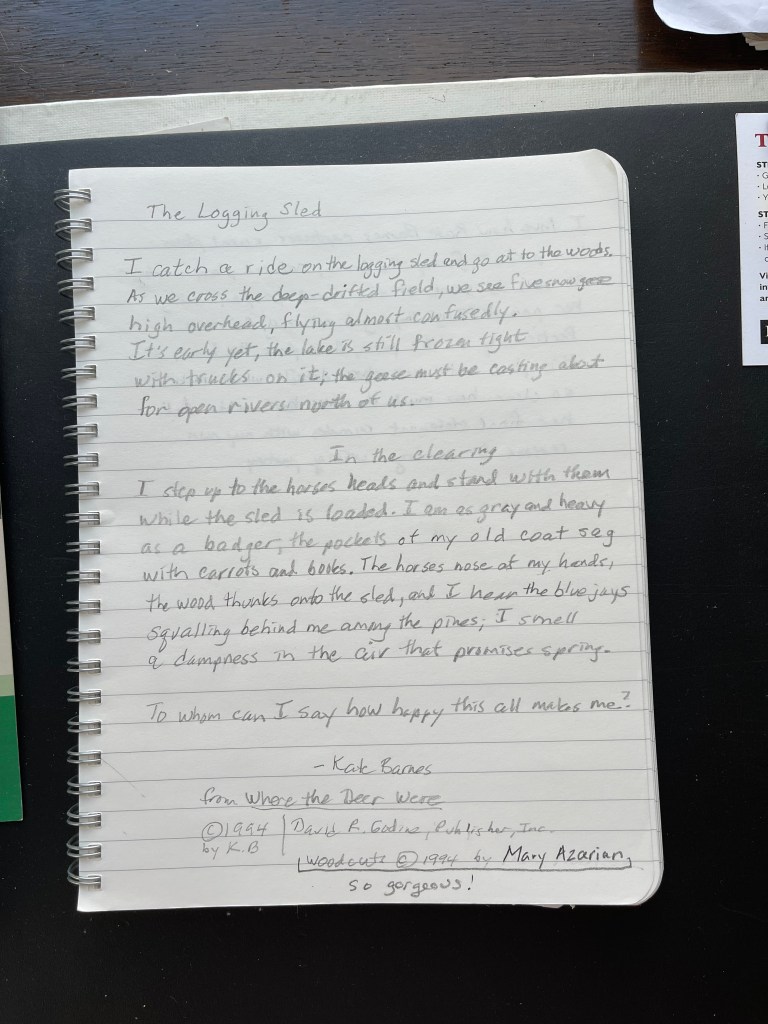 The Logging Sled
I catch a ride on the logging sled and go out to the woods.
As we cross the deep-drifted field, we see five snow geese
high overhead, flying almost confusedly.
It's early yet, the lake is still frozen tight
with trucks on it; the geese must be casting about
for open rivers north of us.
In the clearing
I step up to the horses heads and stand with them
while the sled is loaded. I am as gray and heavy
as a badger, the pockets of my old coat sag
with carrots and books. The horses nose at my hands,
the wood thunks onto the sled, and I hear the blue jays
squalling behind me among the pines; I smell
a dampness in the air that promises spring.
To whom can I say how happy this all makes me?
- Kate Barnes
from Where the Deer Were
©1994 | David R. Godine, Publisher, Inc.
by K.B
Woodcuts ©1994 by Mary Azarian,
so gorgeous!
T
ST
· G
· L
· Y
ST
· F
· S
· I
Vi
in
ar